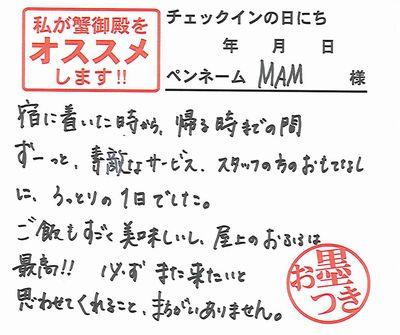 私が蟹御殿を
オススメ
します!!
チェックインの日にち
年 月 日
ペンネーム MAM 様
宿に着いた時から、帰る時までの間
ずーっと、素敵なサービス、スタッフの方のおもてなし
に、うっとりの1日でした。
ご飯もすごく美味しいし、屋上のおふろは
最高!! 必ずまた来たいと
思わせてくれること、まちがいありません。
お墨つき